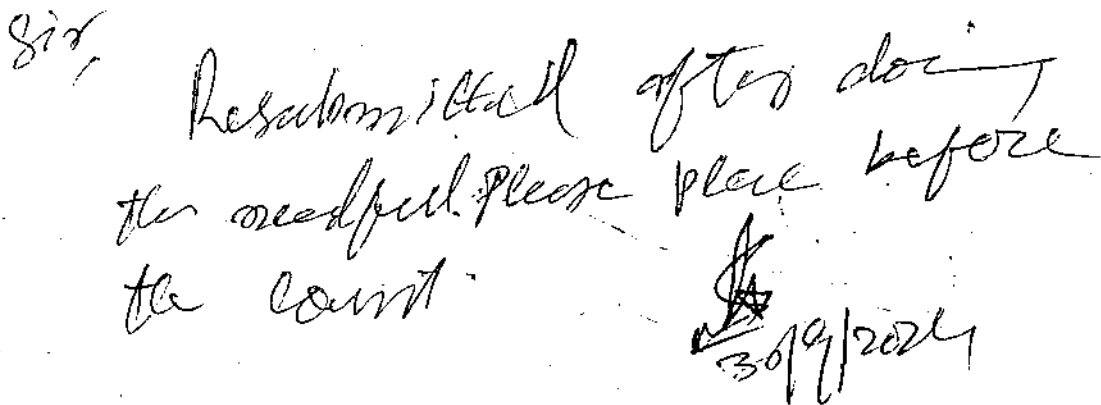 Sir,
Resubmitted after doing
the needful. Please place before
the court.
30/9/2024